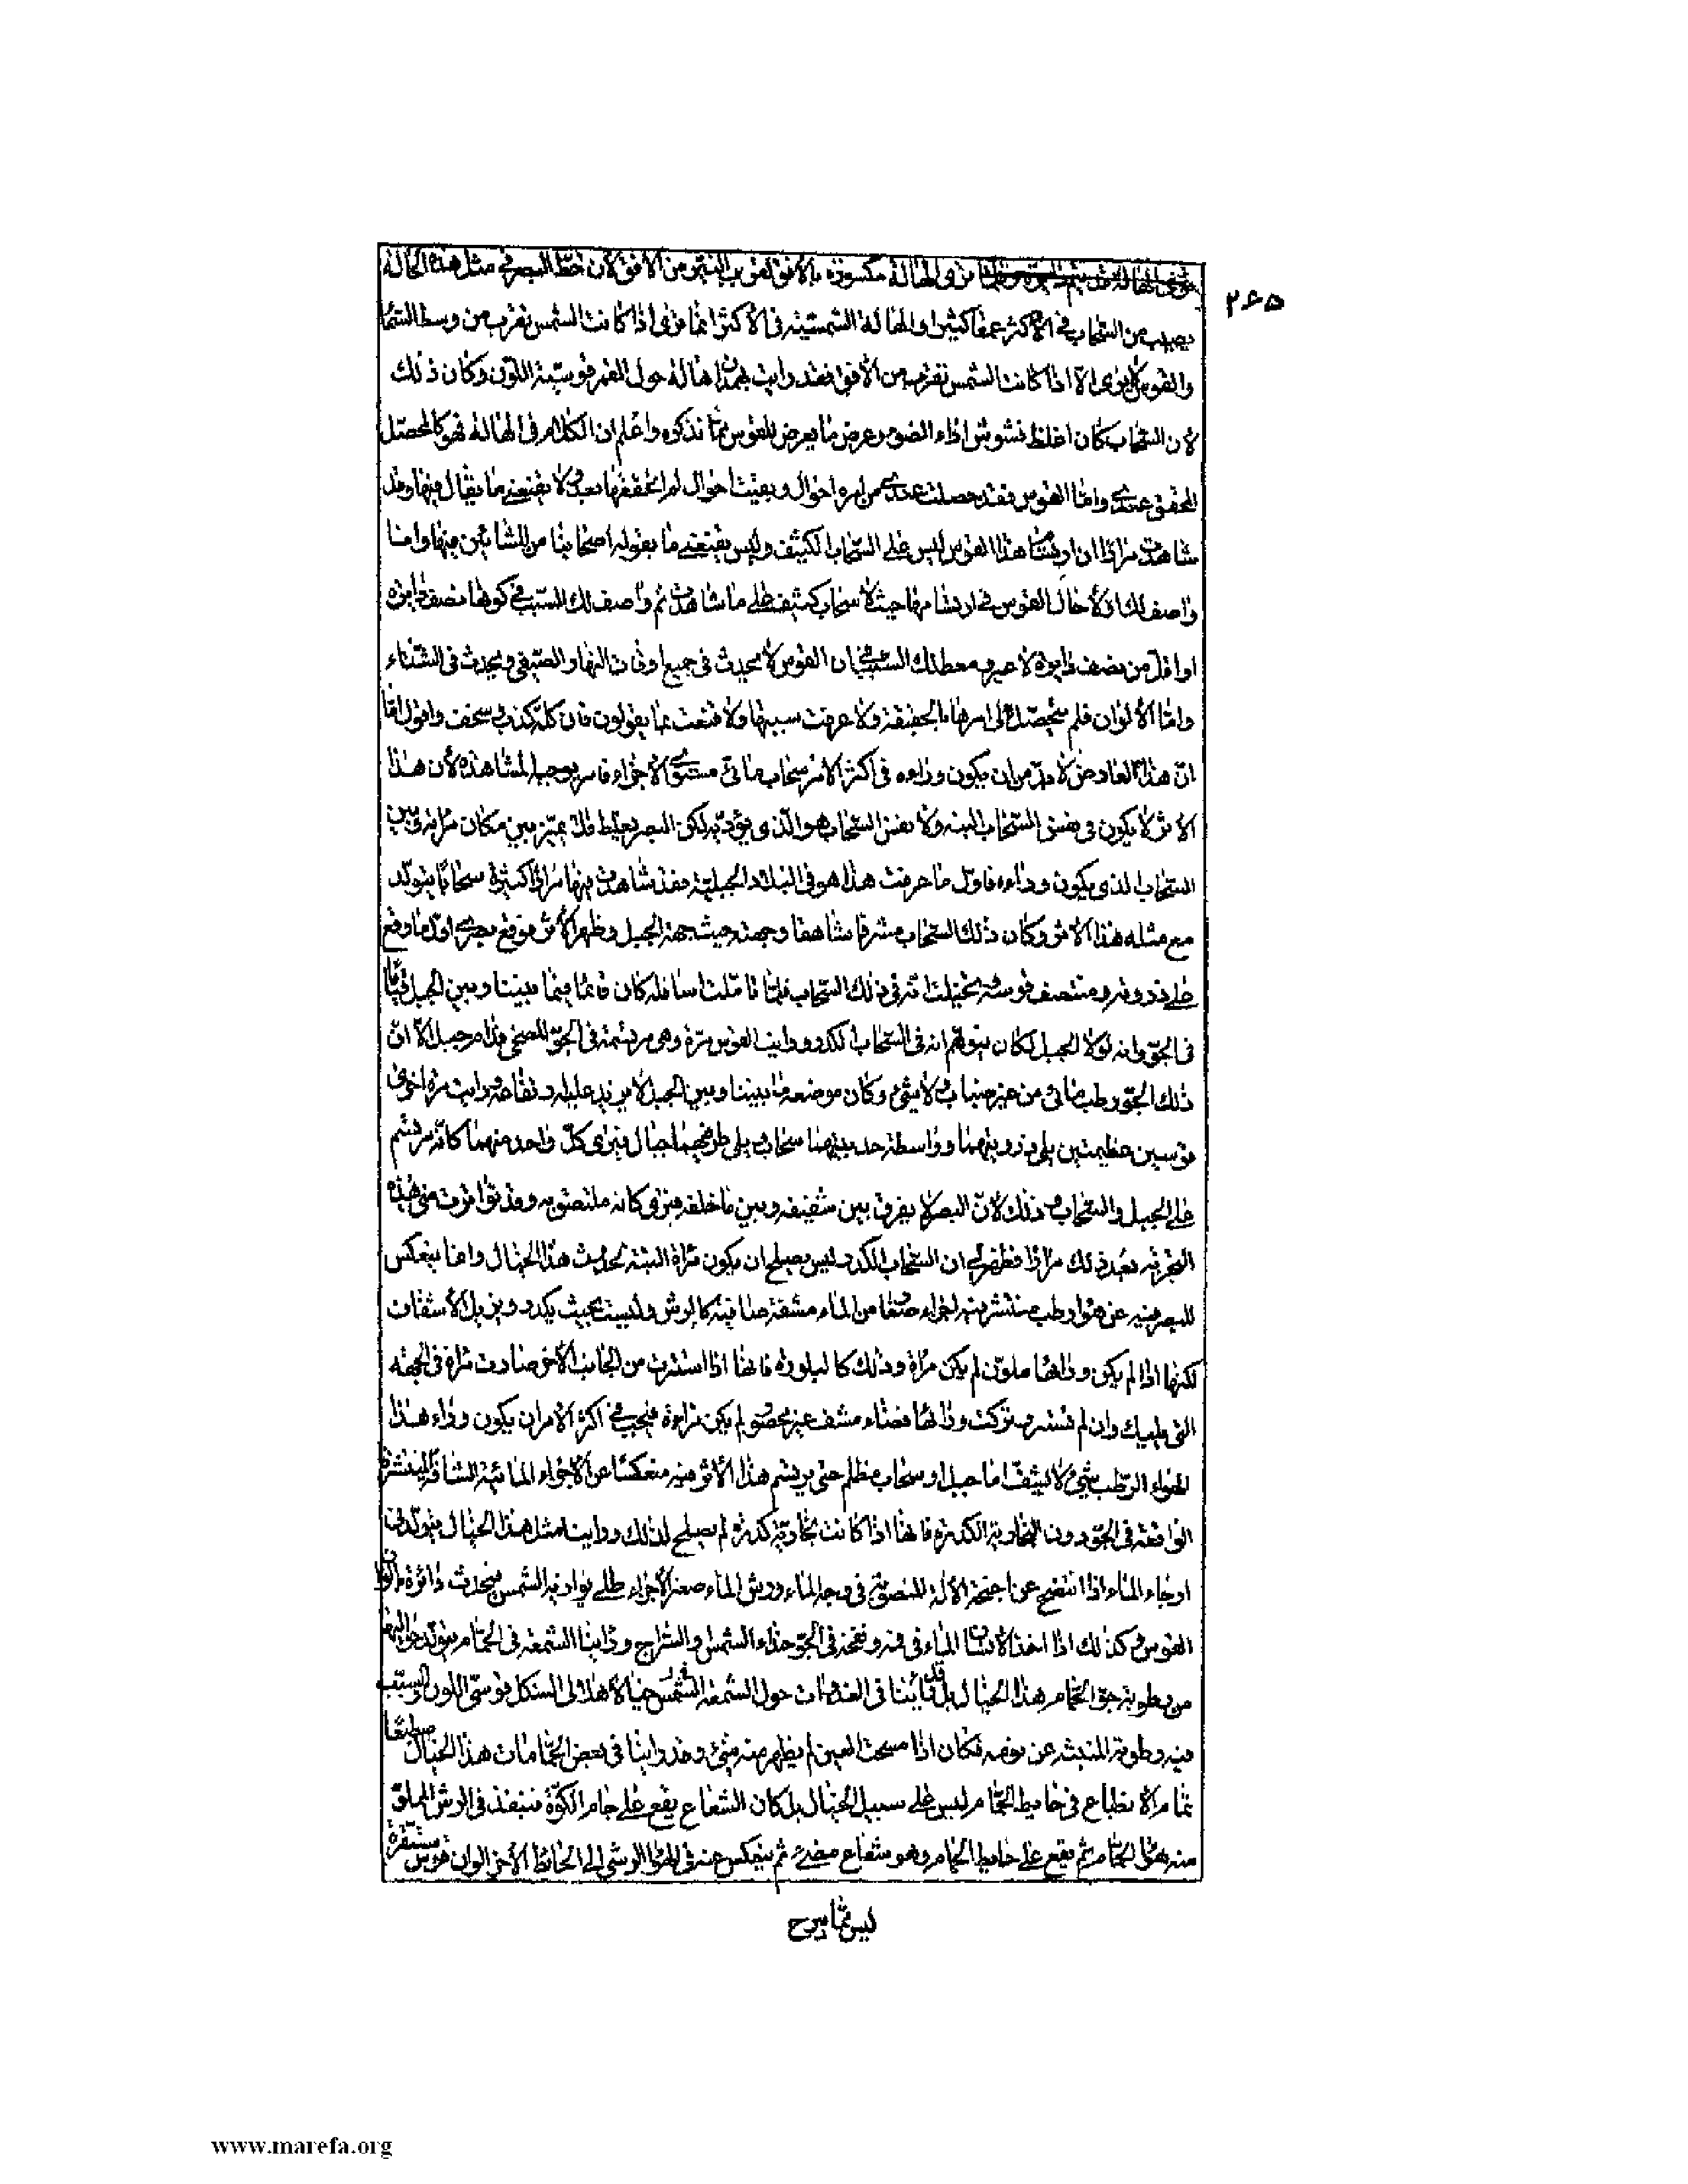 ترى الهالة مكسورة بالأفق لقرب النير من الأفق لأن خط البصر في مثل هذه الحالة
٢٤٥
يصيب من السحاب في الأكثر عمقا كثيرا والهالة الشمسية في الأكثر انما ترى اذا كانت الشمس تقرب من وسط السماء
والقوس لا يرى الا اذا كانت الشمس تقرب من الأفق فقد رايت بهمدان هالة حول القمر قوسية اللون وكان ذلك
لأن السحاب كان اغلظ فشوش اداء الضوء وعرض ما يعرض للقوس مما نذكره واعلم ان الكلام في الهالة فهو كالمحصل
المحقق عندي واما القوس فقد حصلت عندي من امره احوال وبقيت احوال لم اتحققها بعد ولا يقنعني ما يقال فيها وقد
شاهدت مرارا ان ارتسام هذا القوس ليس على السحاب الكثيف وليس يقنعني ما يقوله اصحابنا من المشائين فيها وانا
واصف لك اولا حال القوس في ارتسامها حيث لا سحاب كثيف على ما شاهدت ثم واصف لك السبب في كونها نصف دايرة
او اقل من نصف دايرة لا غير ومعطلك السبب في ان القوس لا يحدث في جميع اوقات النهار الصيفي ويحدث في الشتاء
واما الألوان فلم يتحصل لى امرها بالحقيقة ولا عرفت سببها ولا قنعت بما يقولون فان كله كذب وسخف واقول اما
ان هذا العارض لا بد من ان يكون وراءه في اكثر الأمر سحاب مائى مستوى الأجزاء فامر يوجبه المشاهدة لأن هذا
الأثر لا يكون في نفس السحاب البتة ولا نفس السحاب هو الذى يؤديه لكن البصر يغلط فلا يميز بين مكان مرآته وبين
السحاب الذى يكون وراءه فاول ما عرفت هذا هو في البلاد الجبلية فقد شاهدت فيها مرارا كثيرة سحابا يتولد
مع مثله هذا الأثر وكان ذلك السحاب مشرفا شاهقا وجهته حيث جهة الجبل وظهر الأثر فوقع بصرى اول ما وقع
على ذروته ومنتصف قوسه فتخيلت انه في ذلك السحاب فلما تاملت اسافله كان قائما فيما بيننا وبين الجبل قياما
في الجو وانه لولا الجبل لكان يتوهم انه في السحاب الكدر ورايت القوس مرة وهى مرتسمة في الجو المصحى قدام جبل الا ان
ذلك الجو رطب مائى من غير ضباب ولا شئ وكان موضعه ما بيننا وبين الجبل لا يزيد عليه ارتفاعه ورايت مرة اخرى
قوسين عظيمتين يلى ذروتيهما وواسطة حدبتيهما سحاب ويلى طرفيهما جبال فيرى كل واحد منهما كانه مرتسم
على الجبل والسحاب وذلك لأن البصر لا يفرق بين شفيفه وبين ما خلفه فيرى كانه ملتصق به وقد تواترت منى هذه
التجربة بعد ذلك مرارا فظهر لى ان السحاب الكدر ليس يصلح ان يكون مرآة البتة لحدوث هذا الخيال وانما ينعكس
البصر فيه عن هواء رطب منتشر فيه اجزاء صغار من الماء مشفة صافية كالرش وليست بحيث يكدر ويزيل الأشفاف
لكنها اذا لم يكن وراءها ملون لم يكن مرآة وذلك كالبلورة فانها اذا استترت من الجانب الآخر صارت مرآة في الجهة
التى يليك وان لم تستر بل تركت وراءها فضاء مشف غير محصور لم يكن مرآة فيجب في اكثر الأمر ان يكون وراء هذا
الهواء الرطب شئ لا يشف اما جبل او سحاب مظلم حتى يرتسم هذا الأثر فيه منعكسا عن الأجزاء المائية الشافة المنتشرة
الواقفة في الجو دون البخارية الكدرة فانها اذا كانت بخارية كدرة لم يصلح لذلك ورايت مثل هذا الخيال يتولد في
ارجاء الماء اذا انتضح عن اجنحة الآلة المنصوبة في وجه الماء ورش الماء صغير الأجزاء طلى يوازيه الشمس فيحدث دائرة بالوان
القوس وكذلك اذا اخذ الانسان الماء في فيه ونفخه في الجو حذاء الشمس والسراج ورأينا الشمعة في الحمام يتولد حواليها
من رطوبة جو الحمام هذا الخيال بل قد رأينا في الغدوات حول الشمعة خيالا هلالى الشكل قوسى اللون والسبب
فيه رطوبة العين المنتبهة عن نومه فكان اذا مسحت العين لم يظهر منه شئ وقد رأينا في بعض الحمامات هذا الخيال منطبعا
تمام الانطباع في حايط الحمام ليس على سبيل الخيال بل كان الشعاع يقع على جام الكوة فينفذ في الرش المملو
منه هواء الحمام ثم يقع على حايط الحمام وهو شعاع مضئ ثم ينعكس عنه في الهواء الرشى الى الحائط الآخر الوان قوس مستقرة
ليس مما يبرح
www.marefa.org